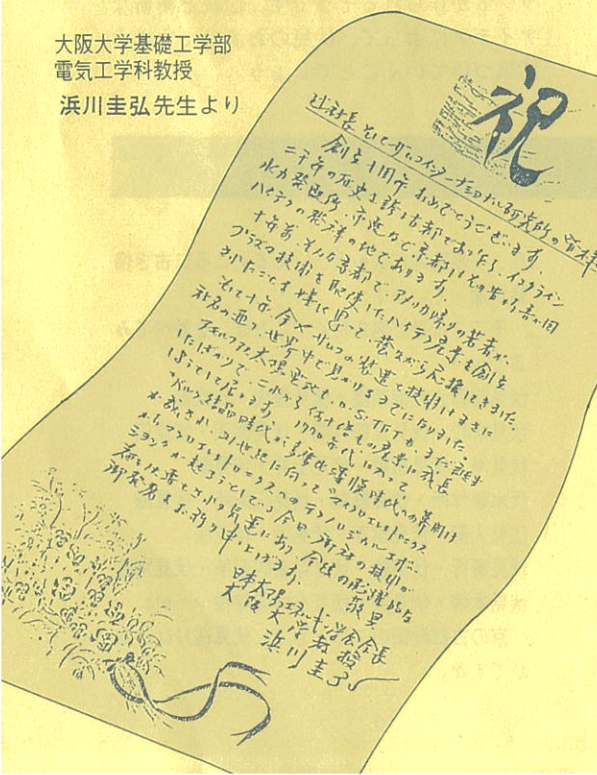 大阪大学基礎工学部
電気工学科教授
浜川圭弘先生より
祝
辻社長 そしてサムコインターナショナル研究所の皆様
創立十周年おめでとうございます。
二千年の歴史を誇る古都でありながら、インクライン
水力発電所、市電など京都はその昔から
ハイテクの発祥の地であります。
十年前、そんな京都で、アメリカ帰りの若者が、
プラズマ技術を駆使したハイテク産業を創立
されたことを嬉しく思って、昔ながら応援してきました。
そして十年、今やサムコの装置と技術はまさに
社名の通り、世界中で見かけるまでになりました。
アモルファス太陽電池も、a-Si TFTも、まだ誕生
したばかりで、これから何十倍もの産業に成長
しようとして居ります。1970年代に入って、
バルク結晶時代から薄膜時代への幕開け
が成され、21世紀に向って"マイクロエレクトロニクス
からマクロエレクトロニクスへのテクノロジカルエボリュー
ション"が起ろうとしている今日、
御発展をお祈り申し上げます。
敬具
日本太陽エネルギー学会会長
大阪大学教授
浜川圭弘